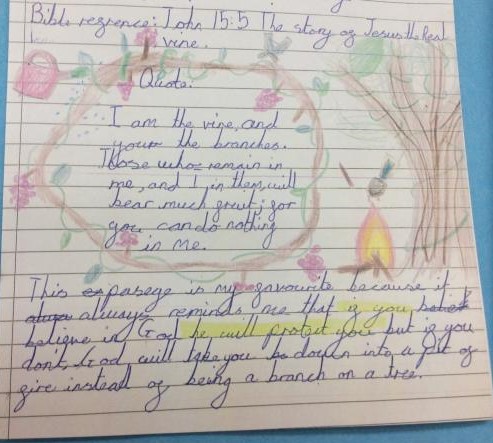 Bible regrence: John 15:5 The story og Jesus the Real
vine.
Quote.
I am the vine, and
your the branches.
Those who remain in
me, and I in them, will
bear much gruit; gor
you can do nothing
in me.
This pasege is my gavourite because it
always reminds me that ig you
believe in God he will protect you but ig you
don't, God will you down into a pit og
gire instead og being a branch on a tree.